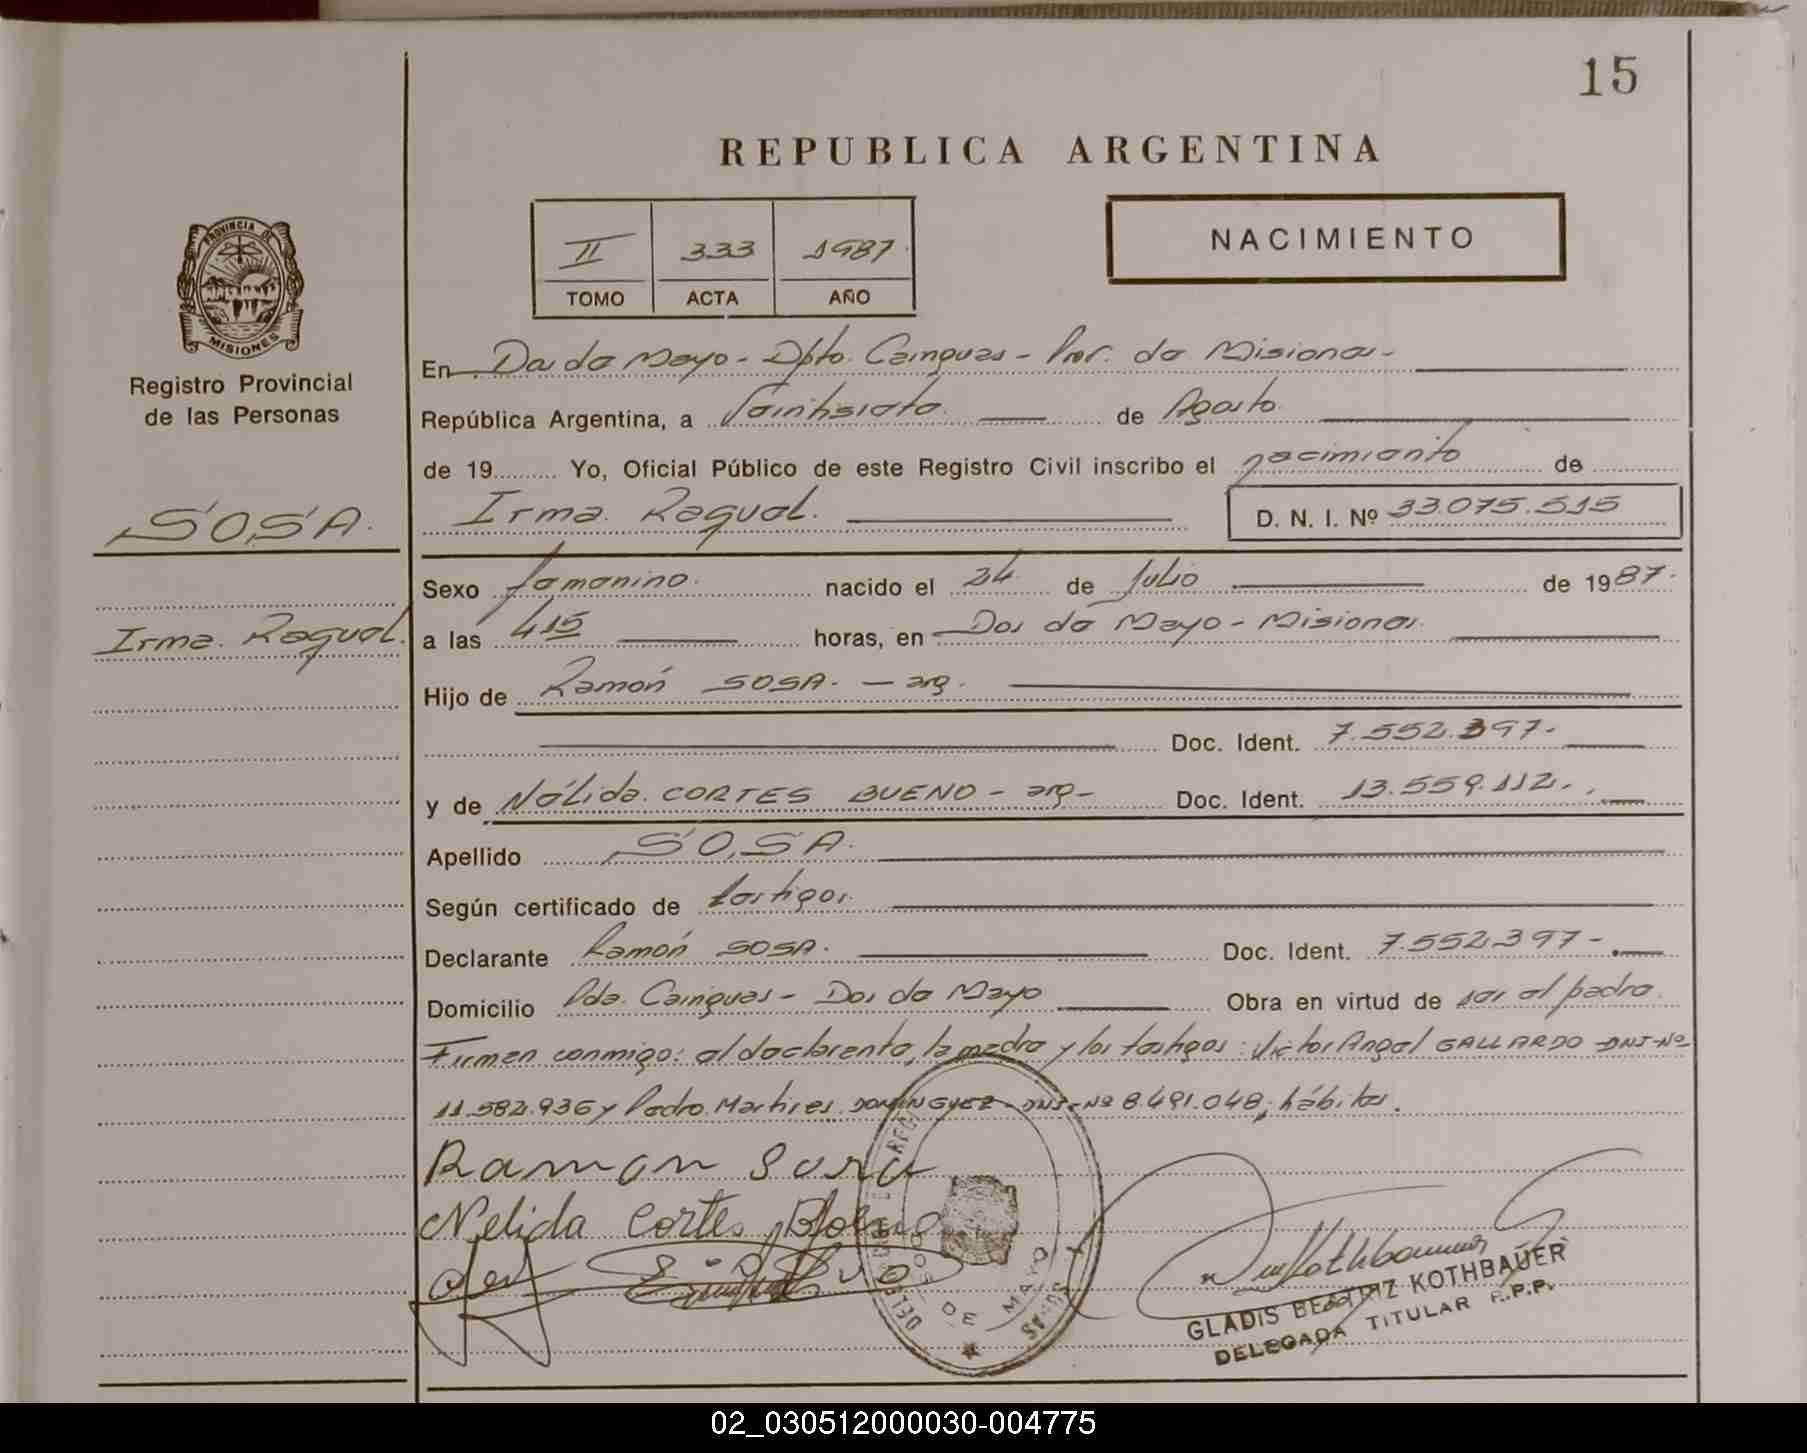 15
REPUBLICA ARGENTINA
II 333 1987.
TOMO ACTA AÑO
NACIMIENTO
PROVINCIA DE
MISIONES
Registro Provincial
de las Personas
SOSA.
Irma. Raquel.
En Dos de Mayo - Dpto. Cainguas - Prov. de Misiones -
República Argentina, a Veintisiete de Agosto
de 19......... Yo, Oficial Público de este Registro Civil inscribo el nacimiento de
Irma. Raquel.
D. N. I. Nº 33.075.515
Sexo femenino. nacido el 24 de Julio de 1987.
a las 4 15 horas, en Dos de Mayo - Misiones.
Hijo de Ramón SOSA. - arg.
Doc. Ident. 7.552.397.-
y de Nélida. CORTES BUENO - arg - Doc. Ident. 13.559.112.
Apellido SOSA.
Según certificado de testigos.
Declarante Ramón SOSA. Doc. Ident. 7.552.397 -
Domicilio Pda. Cainguas - Dos de Mayo Obra en virtud de ser el padre.
Firman conmigo: el declarante, la madre y los testigos: Victor Angel GALLARDO - DNI - Nº
11.582.936 y Pedro. Martires. DOMINGUEZ - DNI - Nº 8.491.048, hábiles.
Ramon Sosa
Nelida Cortes Bueno
DOS DE MAYO
GLADIS BEATRIZ KOTHBAUER
DELEGADA TITULAR R.P.P.
02_030512000030-004775